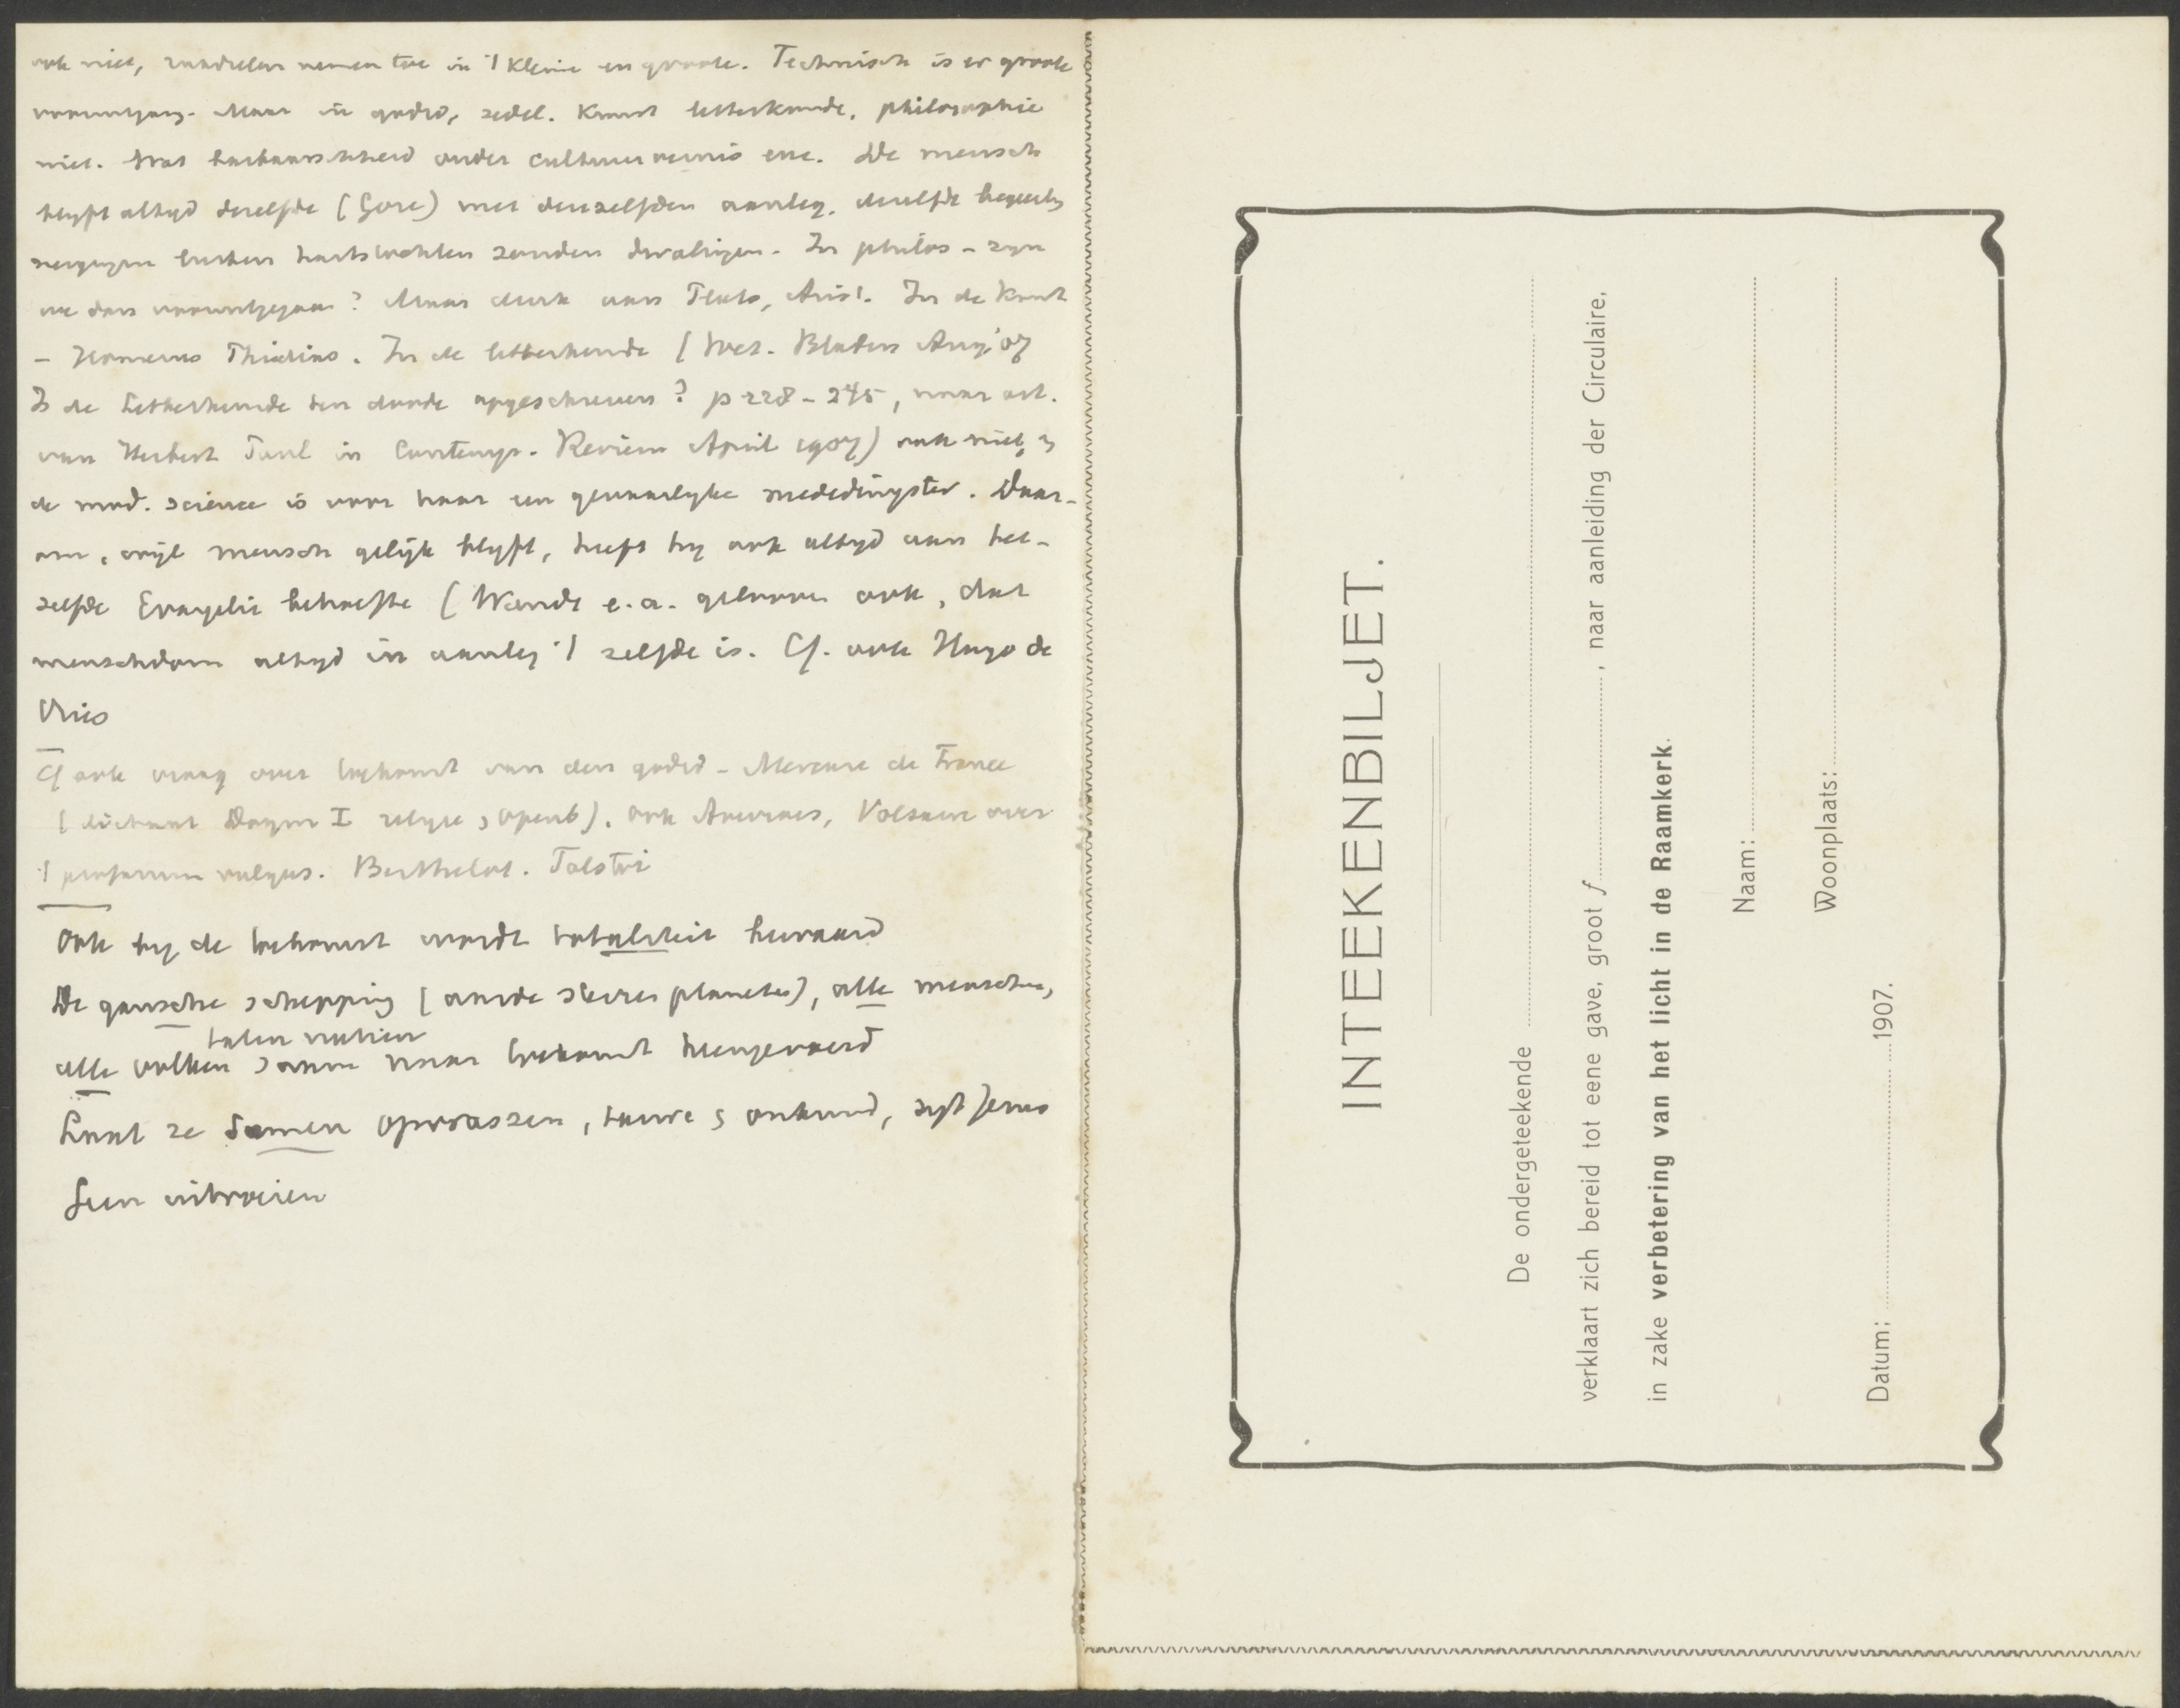 ook niet, nadeelen nemen toe in 't kleine en groote. Technisch is er groote
vooruitgang. Maar in godsd, zedel. Kunst letterkunde, philosophie
niet. Wat barbaarschheid onder cultuurvernis enz. De mensch
blyft altyd dezelfde (Gore) met denzelfden aanleg, dezelfde
neigingen zonden dwalingen. In philos - zyn
we dan vooruitgegaan? Maar denk aan Plato, Arist. In de Kunst
- Homerus Phidias. In de letterkunde (Wet. Bladen Aug. '07
Is de Letterkunde ten doode opgeschreven? p 228 - 245, naar art.
van Herbert Paul in Contemp. Review April 1907) ook niet,
de mod. science is voor haar een gevaarlyke mededingster. Daar-
om, wijl mensch gelijk blyft, heeft hy ook altyd aan het-
zelfde Evangelie behoefte (Wundt e.a. gelooven ook, dat
menschdom altyd in aanleg 't zelfde is. Cf. ook Hugo de
Vries
Cf ook vraag over toekomst van den godsd - Mercure de France
( Dogm I religie openb). ook over
't profanum vulgus. Berthelot. Tolstoi
Ook by de toekomst wordt totaliteit bewaard
De gansche schepping (aarde sterren planeten), alle menschen,
talen natien
alle volken samen naar toekomst heengevoerd
Laat ze samen opwassen, tarwe onkruid, zegt Jezus
Geen uitroeien
INTEEKENBILJET.
De ondergeteekende
verklaart zich bereid tot eene gave, groot f , naar aanleiding der Circulaire,
in zake verbetering van het licht in de Raamkerk.
Naam:
Woonplaats:
Datum: 1907.